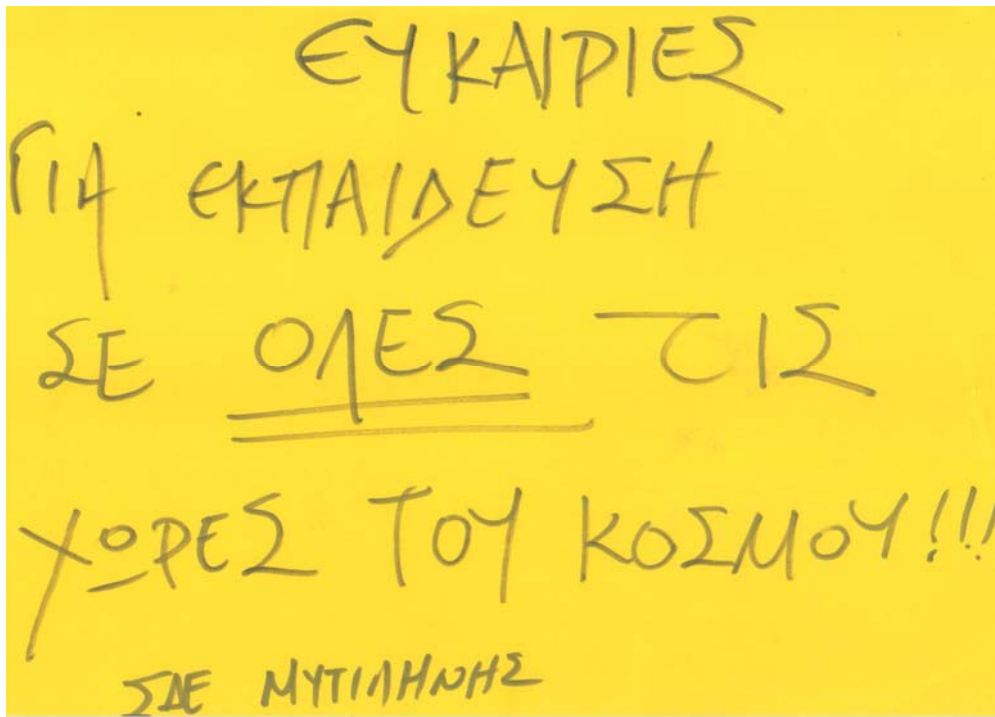 ΕΥΚΑΙΡΙΕΣ
ΓΙΑ ΕΚΠΑΙΔΕΥΣΗ
ΣΕ ΟΛΕΣ ΤΙΣ
ΧΩΡΕΣ ΤΟΥ ΚΟΣΜΟΥ!!!
ΣΔΕ ΜΥΤΙΛΗΝΗΣ